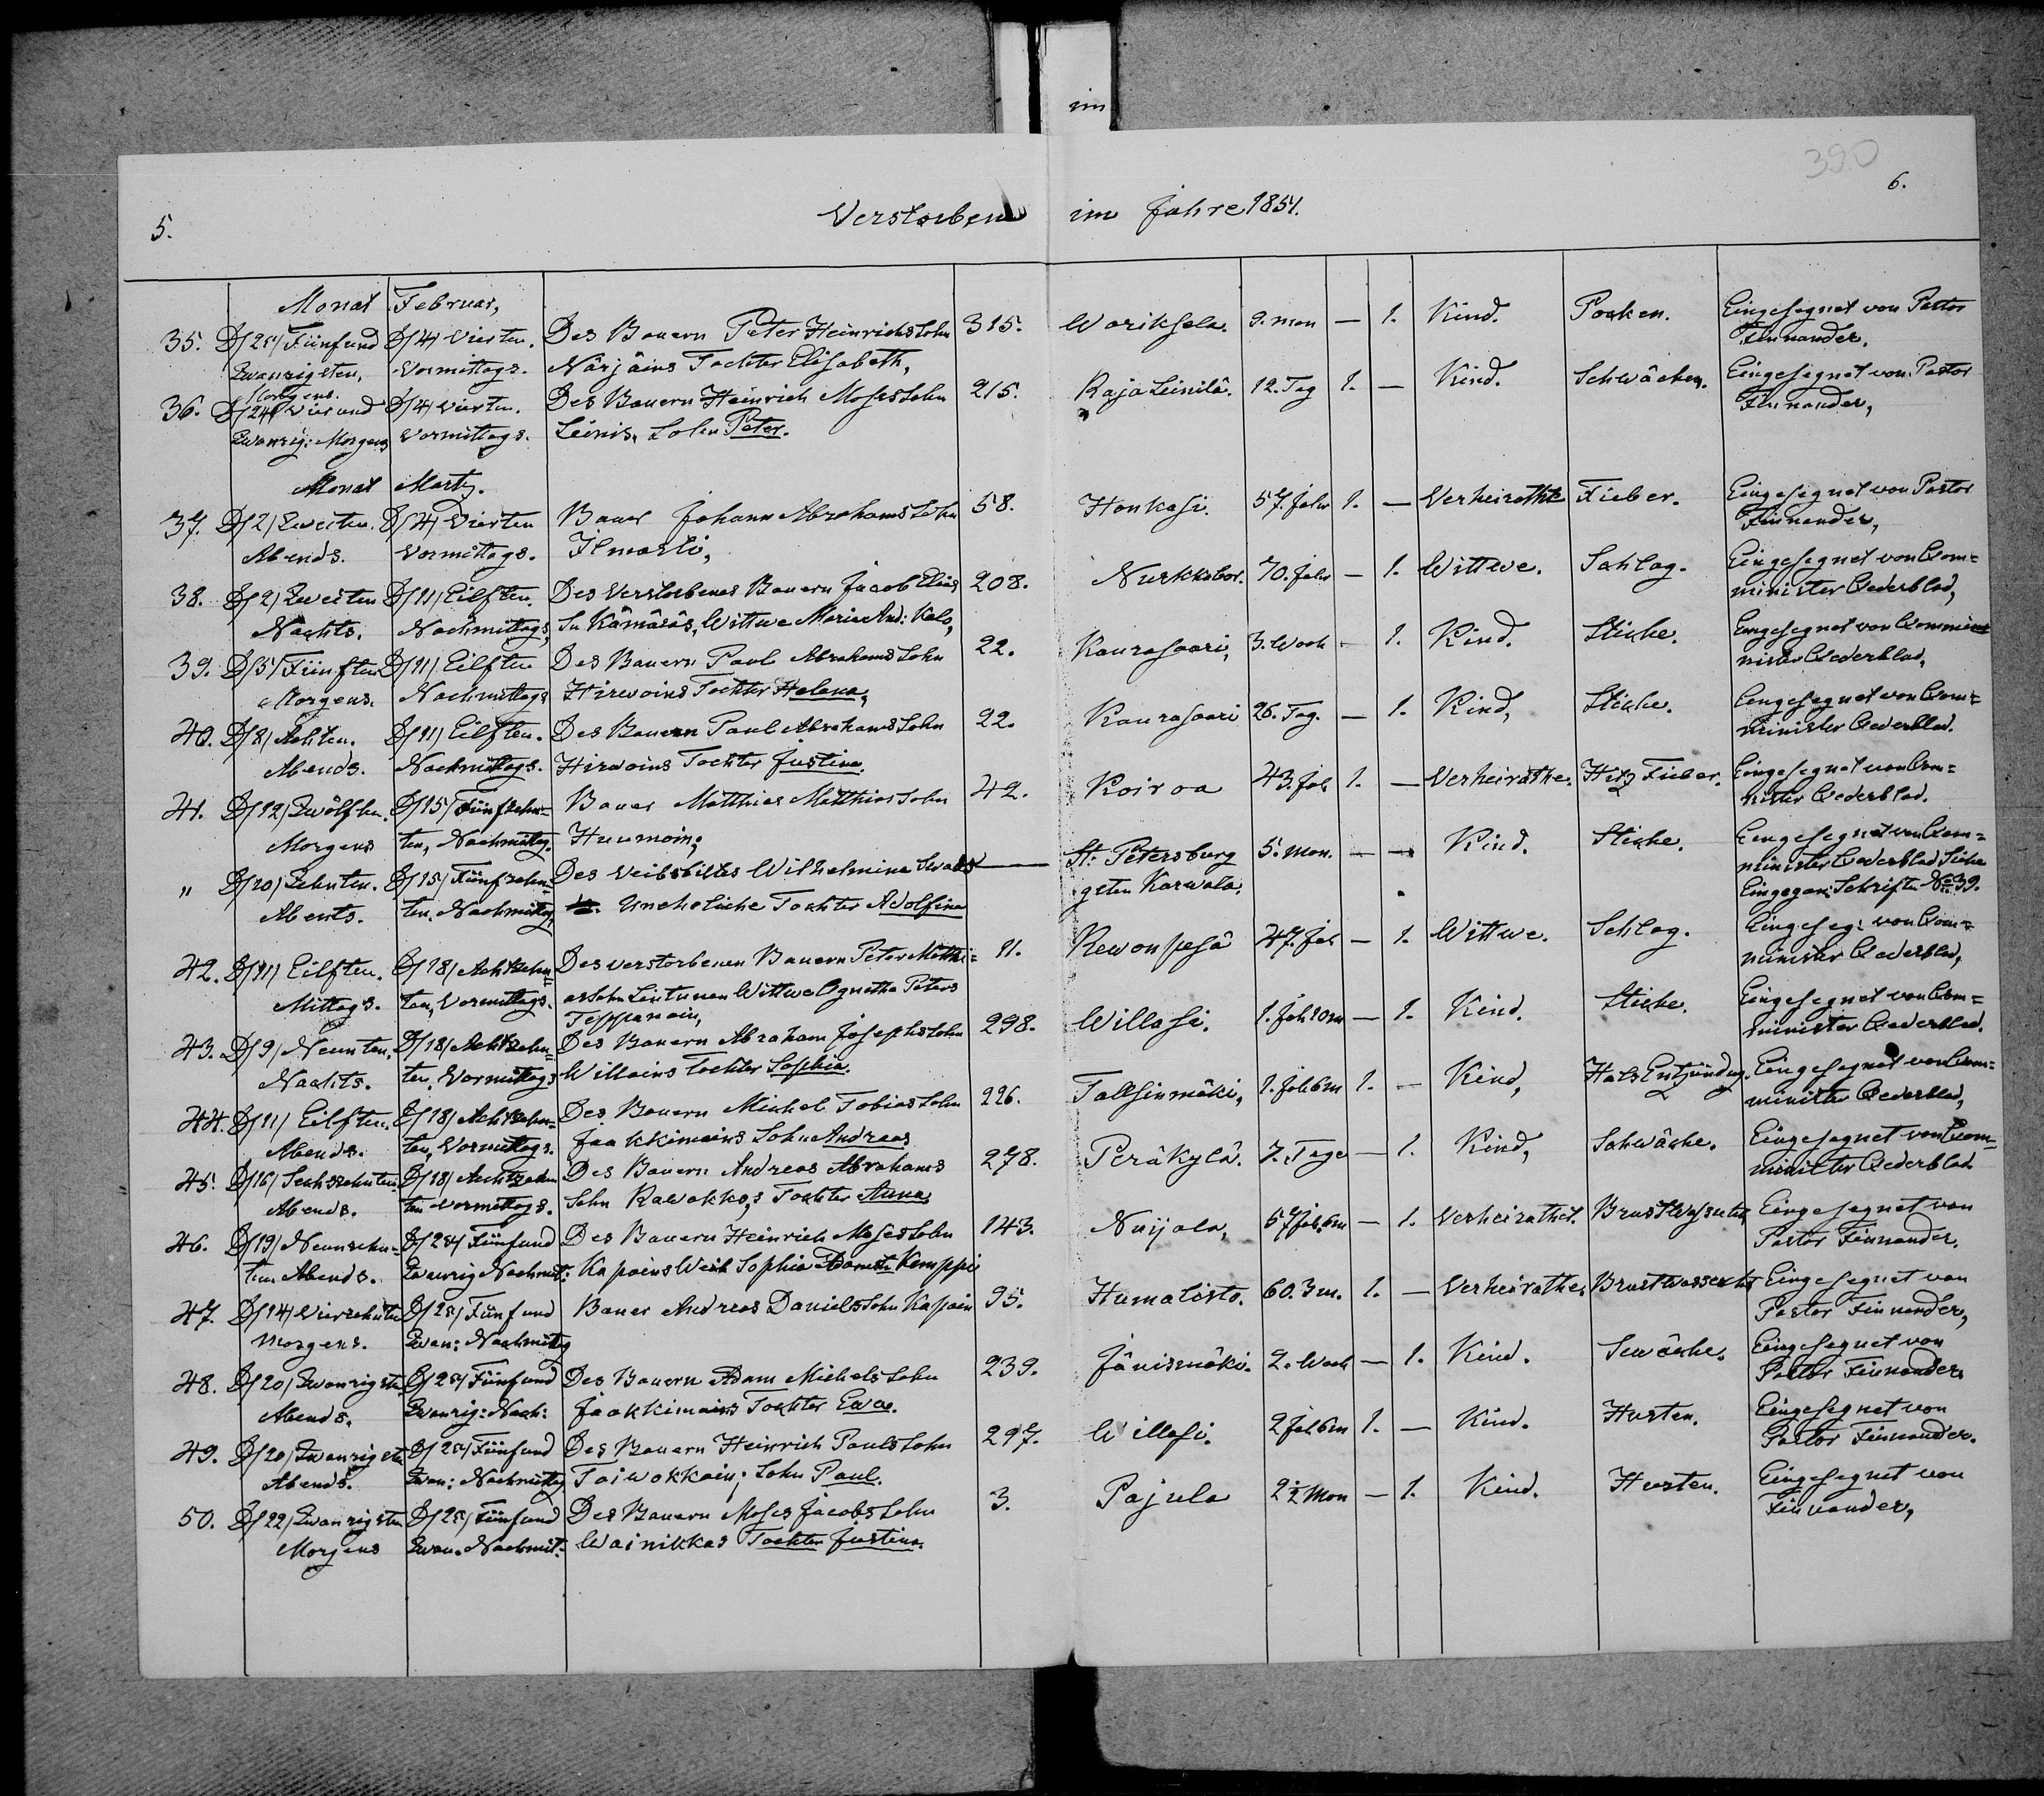 im
390
5.
6.
Verstorbene im Jahre 1851.
Monat Februar,
35. D/25/ Fünfund D/4/ Vierten. Des Bauern Peter Heinrichs Sohn 315. Woriksela. 9. mon — 1. Kind. Pocken. Eingesegnet von Pastor
Zwanzigsten, Vormittags. Närjäins Tochter Elisabeth, Finnander.
Morgens.
36. D/24/ Vierund D/4/ Vierten. Des Bauern Heinrich Moses Sohn 215. Raja Leinilä. 12. Tag 1. — Kind. Schwäche. Eingesegnet von Pastor
Zwanzig: Morgens Vormittags. Leinis, Sohn Peter. Finnander,
Monat Martz.
37. D/2/ Zweiten. D/4/ Vierten Bauer Johann Abrahams Sohn 58. Honkasi. 57. Jahr 1. — Verheirathte Fieber. Eingesegnet von Pastor
Abends. Vormittags. Ilmasti, Finnander,
38. D/2/ Zweiten D/11/ Eilften. Des Verstorbenes Bauern Jacob Elias 208. Nurkkabor. 70. Jahr — 1. Wittwe. Schlag. Eingesegnet von Com=
Nachts. Nachmittags, Sn Kämäräs, Wittwe Maria And: Kalo, minister Cederblad,
39. D/5/ Fünften D/11/ Eilften Des Bauern Paul Abrahams Sohn 22. Kaurasaari, 3. Woch — 1. Kind. Stiche. Eingesegnet von Commi
Morgens. Nachmittags Hirwoins Tochter Helena, nister Cederblad,
40. D/8/ Achten. D/11/ Eilften. Des Bauern Paul Abrahams Sohn 22. Kaurasaari 26. Tag. — 1. Kind, Stiche. Eingesegnet von Com=
Abends. Nachmittags. Hirwoins Tochter Justina. minister Cederblad.
41. D/12/ Zwölften. D/15/ Fünfzehn= Bauer Matthias Matthias Sohn 42. Koiroa 43. Jah 1. — Verheirathe. Hitz Fieber. Eingesegnet von Com=
Morgens ten, Nachmittag. Huumoin, nister Cederblad.
" D/10/ Zehnten. D/15/ Fünfzehn= Des Weibsbildes Wilhelmina — St. Petersburg 5. Mon. — — Kind. Stiche. Eingesegnet von Com=
Abents. ten, Nachmittag, Uneheliche Tochter Adolfina geten Karwala. minister Cederblad Siehe
Eingegan: Schriften No 39.
42. D/11/ Eilften. D/18/ Achtzehn= Des verstorbenen Bauern Peter Matthi= 11. Rewonpesä 47. Jah — 1. Wittwe. Schlag. Eingeseg: von Com=
Mittags. ten, Vormittags. as Sohn Lintunen Wittwe Agnetha Peters minister Cederblad,
Teppanain,
43. D/9/ Neunten. D/18/ Achtzehn= Des Bauern Abraham Josephs Sohn 298. Willasi. 1. Jah 10m — 1. Kind. Stiche. Eingesegnet von Com=
Nachts. ten, Vormittags Willains Tochter Sophia. minister Cederblad.
44. D/11/ Eilften. D/18/ Achtzehn= Des Bauern Michel Tobias Sohn 226. Tallsinmäki, 1. Jah 6m 1. — Kind, Hals Entzündung. Eingesegnet von Com=
Abends. ten, Vormittags. Jaakkimains Sohn Andreas minister Cederblad,
45. D/16/ Sechszehnten D/18/ Achtzehn Des Bauern Andreas Abrahams 278. Peräkylä. 7. Tage — 1. Kind, Schwäche. Eingesegnet von Com=
Abends. ten Vormittags. Sohn Rawokkas Tochter Anna minister Cederblad.
46. D/19/ Neunzehn= D/25/ Fünfund Des Bauern Heinrich Moses Sohn 143. Nuijala, 57 Jah. 6m — 1. Verheirathet. Brustwasser Eingesegnet von
ten Abends. Zwanzig Nachmit: Kapains Weib Sophia Adams T. Kemppi Pastor Finnander.
47. D/14/ Vierzehnten D/25/ Fünfund Bauer Andreas Daniels Sohn Kapain 95. Humalisto. 60. 3m. 1. — Verheirathe. Brustwasser Eingesegnet von
Morgens. Zwan: Nachmittag Pastor Finnander,
48. D/20/ Zwanzigste D/25/ Fünfund Des Bauern Adam Michels Sohn 239. Jänismäki. 2. Woch — 1. Kind. Swäche. Eingesegnet von
Abends. Zwanzig: Nach: Jaakkimains Tochter Ewa. Pastor Finnander
49. D/20/ Zwanzigste D/25/ Fünfund Des Bauern Heinrich Pauls Sohn 297. Willasi. 2 Jah 6m 1. — Kind. Husten. Eingesegnet von
Abends. Zwan: Nachmittag Taiwokkain, Sohn Paul. Pastor Finnander.
50. D/22/ Zwanzigsten D/25/ Fünfund Des Bauern Moses Jacobs Sohn 3. Pajula 2½ Mon — 1. Kind. Husten. Eingesegnet von
Morgens Zwan. Nachmit: Wainikkas Tochter Justina. Finnander,